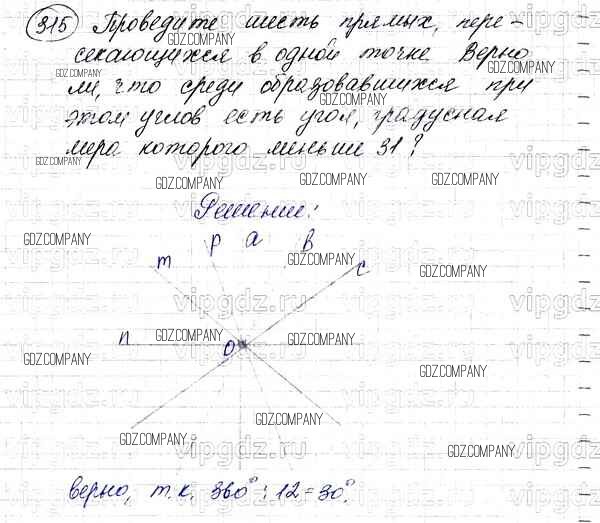 315 Проведите шесть прямых, пере-
секающихся в одной точке Верно
ли, что среди образовавшихся при
этом углов есть угол, градусная
мера которого меньше 31?
Решение:
p a b
m c
n O
верно, т.к. 360° : 12 = 30°.
GDZ.COMPANY
vipgdz.ru